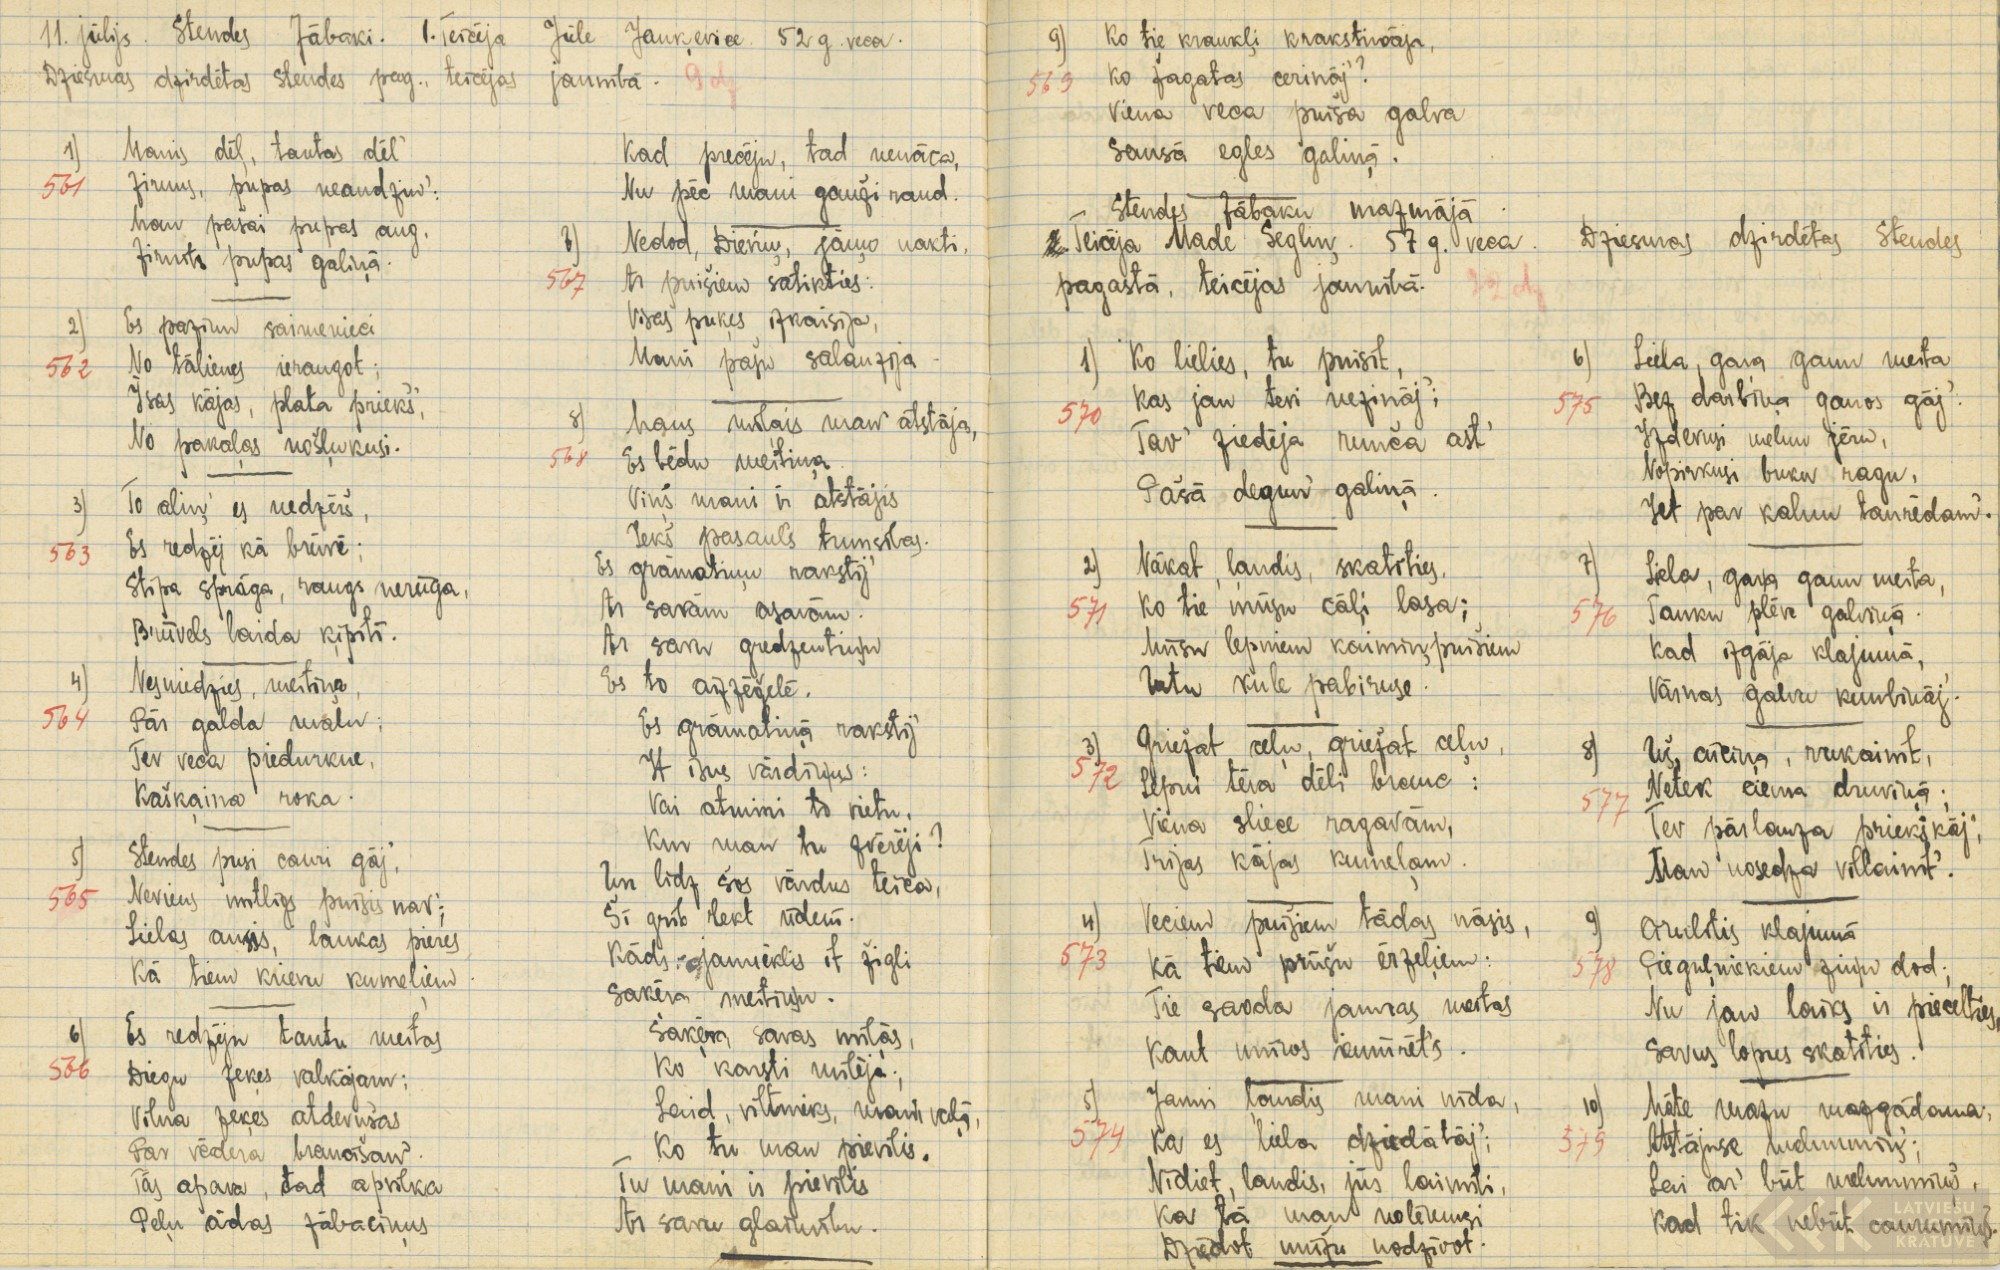 11. jūlijs. Stendes Zābaki. 1. Teicēja Jūle Jaunķevice. 52 g. veca.
Dziesmas dzirdētas Stendes pag., teicējas jaunībā. 9 dz
1)
561
Manis dēļ, tautas dēļ'
Zirnus, pupas neaudzin':
Man pašai pupas aug,
Zirnīts pupas galiņā.
2)
562
Es pazinu saimenieci
No tālienes ieraugot;
Īsas kājas, plata priekš',
No pakaļas nošļukusi.
3)
563
To aliņ' es nedzēŗš,
Es redzēj kā brūvē;
Stīpa sprāga, raugs nerūga,
Brūvels laida ķipītī.
4)
564
Nesniedzies, meitiņa,
Pār galda malu;
Tev veca piedurkne,
Kašķaina roka.
5)
565
Stendes pusi cauri gāj',
Neviens mīlīgs puisis nav';
Lielas ausis, laukas pieres
Kā tiem krievu kumeļiem.
6)
566
Es redzēju tautu meitas
Diegu zeķes valkājam;
Vilna zeķes atdevušas
Par vēdera braucīšan'.
Tās apava, tad apvilka
Peļu ādas zābaciņus
Kad precēju, tad nenāca,
Nu pēc mani gauži raud.
7)
567
Nedod, Dieviņ, šāmo nakti,
Ar puišiem satikties:
Visas puķes izkaisīja,
Mani pašu salauzīja.
8)
568
Mans mīļais man' atstāja,
Es bēdu meitiņa.
Viņš mani ir atstājis
Iekš pasauls tumsības.
Es grāmatiņu rakstīj'
Ar savām asarām.
Ar savu gredzentiņu
Es to aizzēģelē.
Es grāmatiņā rakstīj'
It īsus vārdiņus:
Vai atmini to vietu,
Kur man tu zvērēji?
Un līdz šos vārdus teica,
Šī grib lekt ūdenī.
Kāds jauneklis it žigli
Sakēra meitiņu.
Sakēra savas mīļās,
Ko karsti mīlēja;
Laid, viltnieks, mani vaļā,
Ko tu man pievīlis.
Tu mani ir pievīlis
Ar savu glaimību.
9)
569
Ko tie kraukļi krakstināja,
Ko žagatas cerināj'?
Viena veca puiša galva
Sausā egles galiņā.
Stendes Zābaku mazmājā
2. Teicēja Made Segliņ. 57 g. veca. Dziesmas dzirdētas Stendes
pagastā, teicējas jaunībā.
1)
570
Ko lielies, tu puisīt,
Kas jau tevi nezināj';
Tav' ziedēja runča ast'
Pašā degun' galiņā.
2)
571
Nākat, ļaudis, skatīties,
Ko tie mūsu cāļi lasa;
Mūsu lepniem kaimiņpuišiem
Utu kule pabiruse.
3)
572
Griežat ceļu, griežat ceļu,
Lepni tēva dēli brauc:
Viena sliece ragavām,
Trijas kājas kumeļam.
4)
573
Veciem puišiem tādas nāsis,
Kā tiem prūšu ērzeļiem:
Tie saoda jaunas meitas
Kaut mūros iemūrēt's.
5)
574
Jauni ļaudis mani nīda,
Ka es liela dziedātāj';
Nīdiet, ļaudis, jūs laimīti,
Ka tā man nolēmusi
Dziedot mūžu nodzīvot.
6)
575
Liela, gaŗa gaun meita
Bez darbiņa ganos gāj':
Izdevusi melnu jēru,
Nopirkusi buku ragu,
Iet par kalnu taurēdam'.
7)
576
Liela, gaŗa gaun meita,
Tauku plēve galviņā.
Kad izgāja klajumā,
Vārnas galvu kumbināj'.
8)
577
Uš, cūciņa, rukainīt,
Netek ciema druviņā;
Tev pārlauza priekškāj',
Man nosedza villainīt'.
9)
578
Cīrulītis klajumā
Pieguļniekiem ziņu dod;
Nu jau laiks ir piecelties,
Savus lopus skatīties.
10)
579
Māte mazu mazgādama,
Atstājuse melnumiņ';
Lai ar' būt melnumiņš,
Kad tik nebūt caurumiņš.
LATVIEŠU
KRĀTUVE